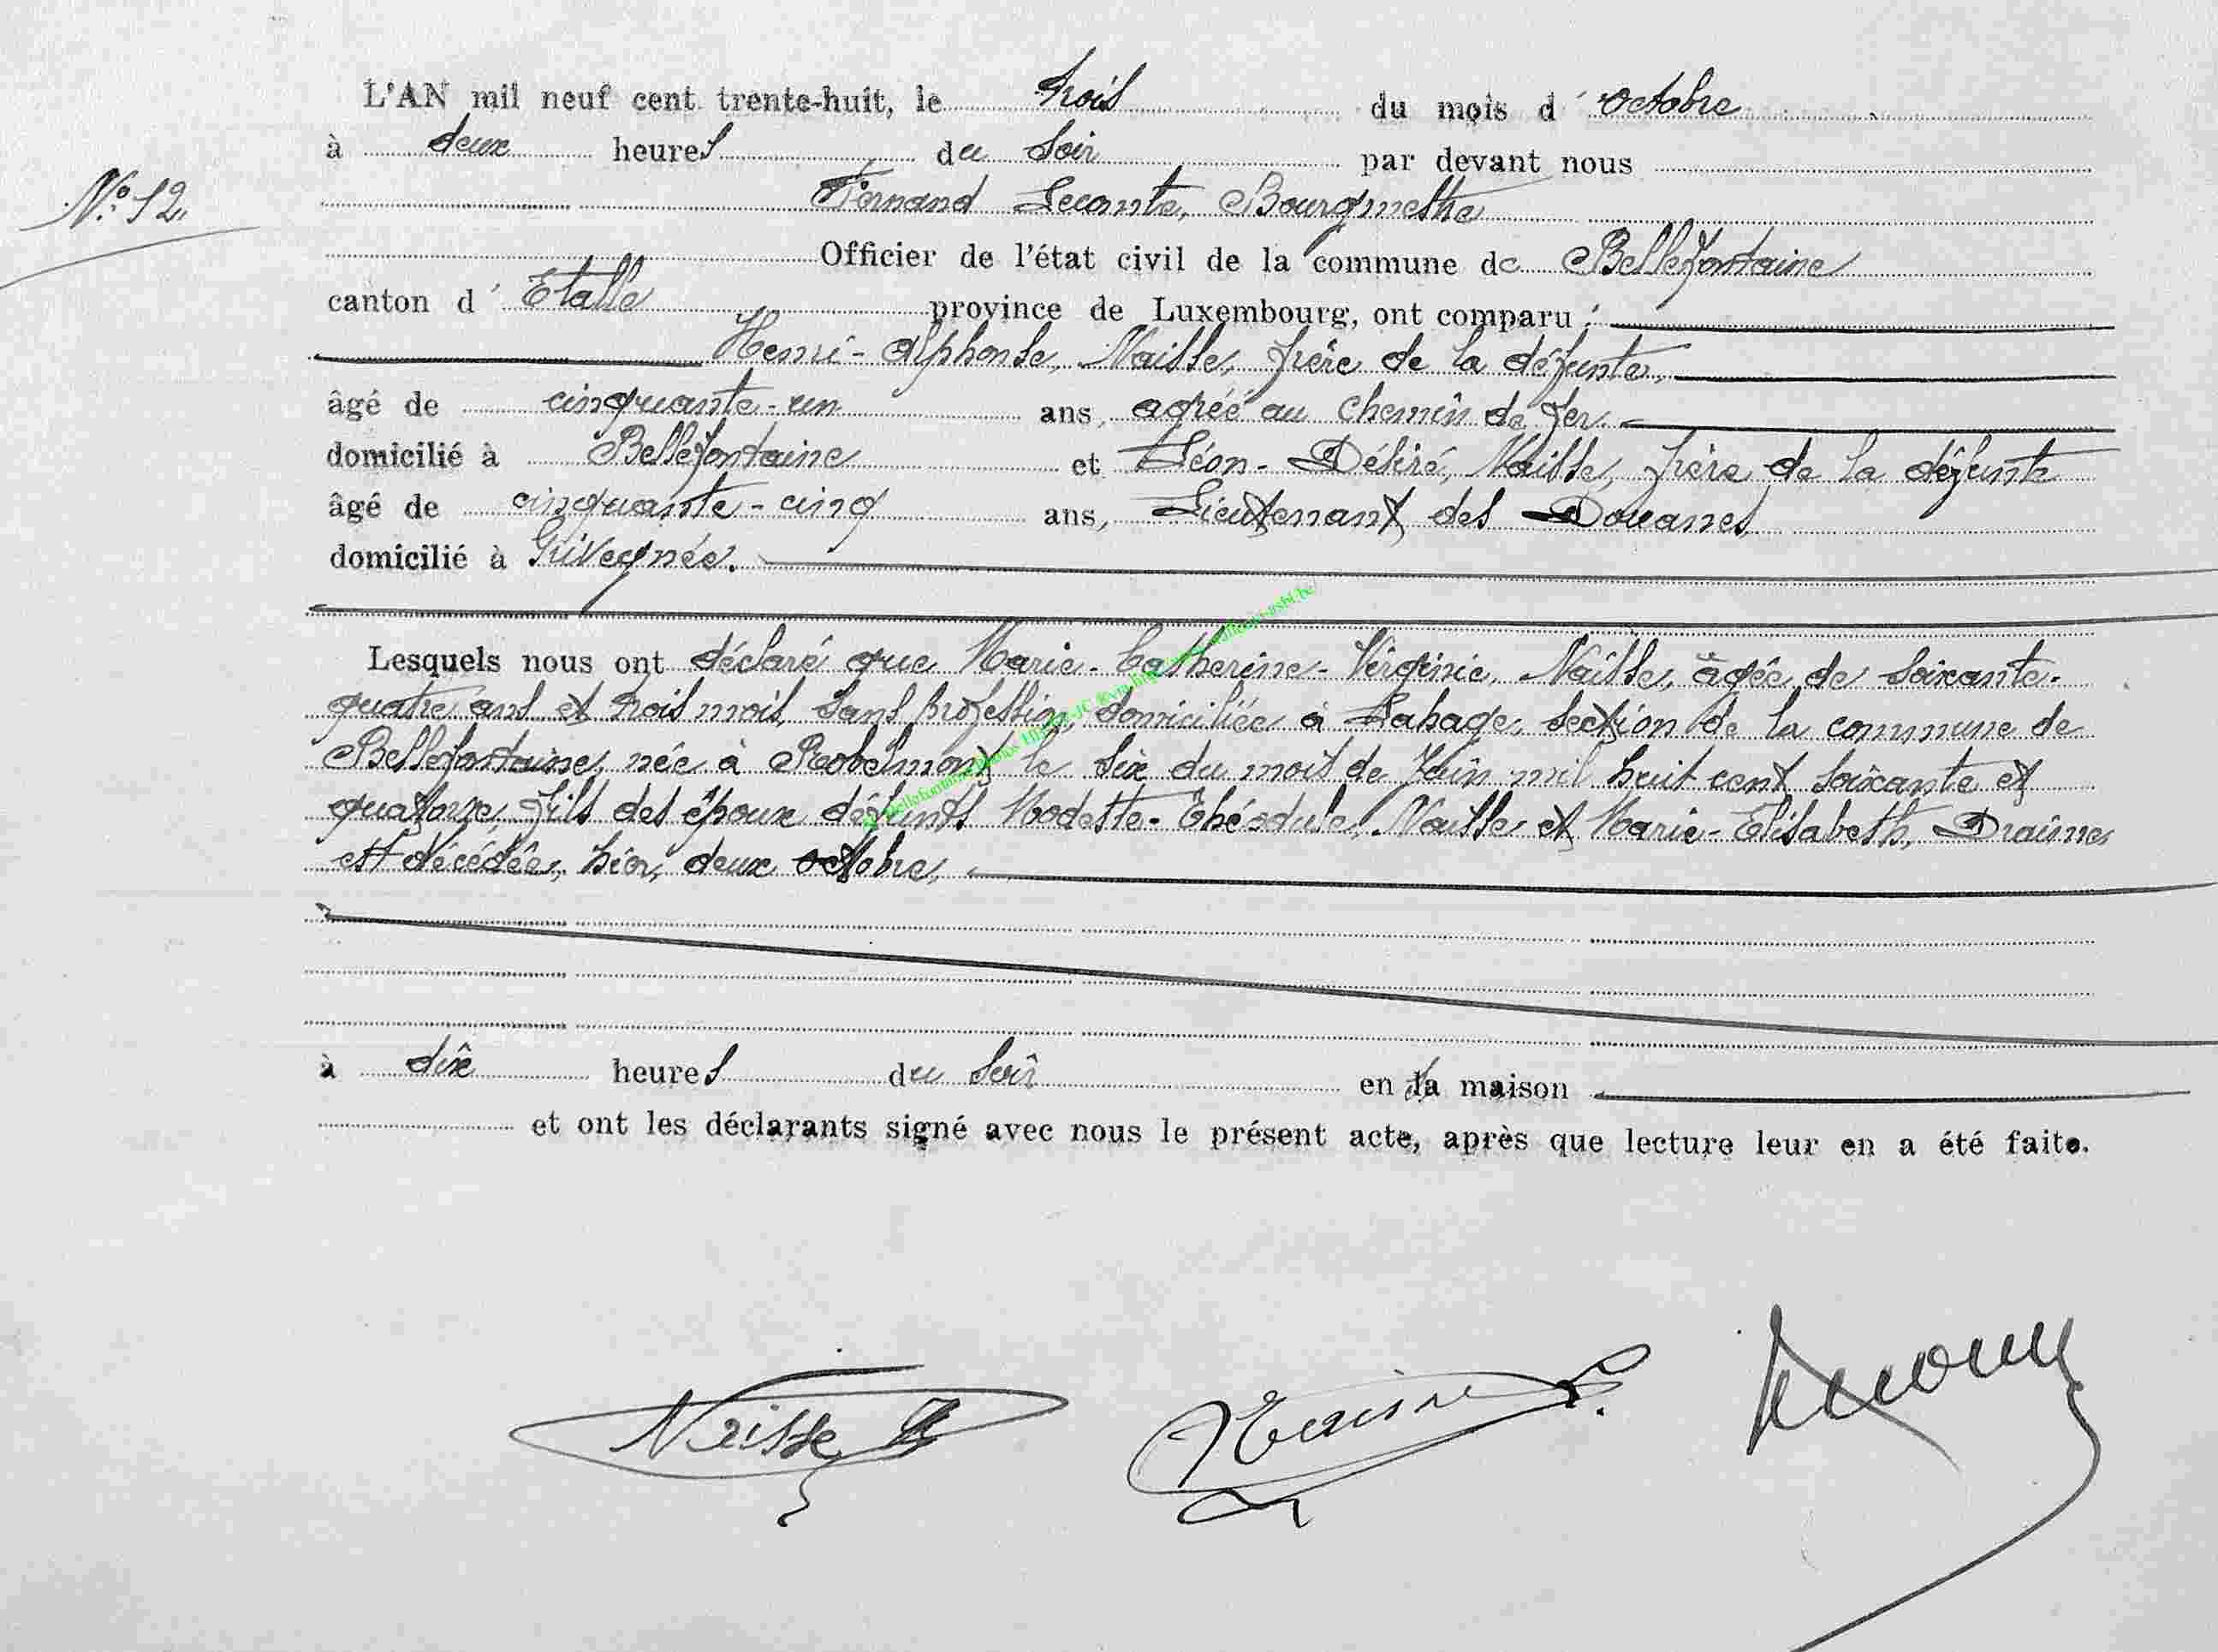 L'AN mil neuf cent trente-huit, le trois du mois d'octobre
à deux heures du soir par devant nous
N° 12 Fernand Lecomte, Bourgmestre
Officier de l'état civil de la commune de Bellefontaine
canton d'Etalle province de Luxembourg, ont comparu :
Henri-Alphonse, Naisse, frère de la défunte,
âgé de cinquante-un ans, agréé au chemin de fer.
domicilié à Bellefontaine et Léon-Désiré, Naisse, frère de la défunte
âgé de cinquante-cinq ans, Lieutenant des Douanes
domicilié à Grivegnée.
Lesquels nous ont déclaré que Marie-Catherine-Virginie, Naisse, âgée de soixante-
quatre ans et trois mois, sans profession, domiciliée à Lahage, section de la commune de
Bellefontaine, née à Robelmont le six du mois de Juin mil huit cent soixante et
quatorze, fils des époux défunts Modeste-Théodule, Naisse et Marie-Elisabeth, Draime
est décédée, hier, deux octobre,
à dix heures du soir en sa maison
et ont les déclarants signé avec nous le présent acte, après que lecture leur en a été faite.
Naisse